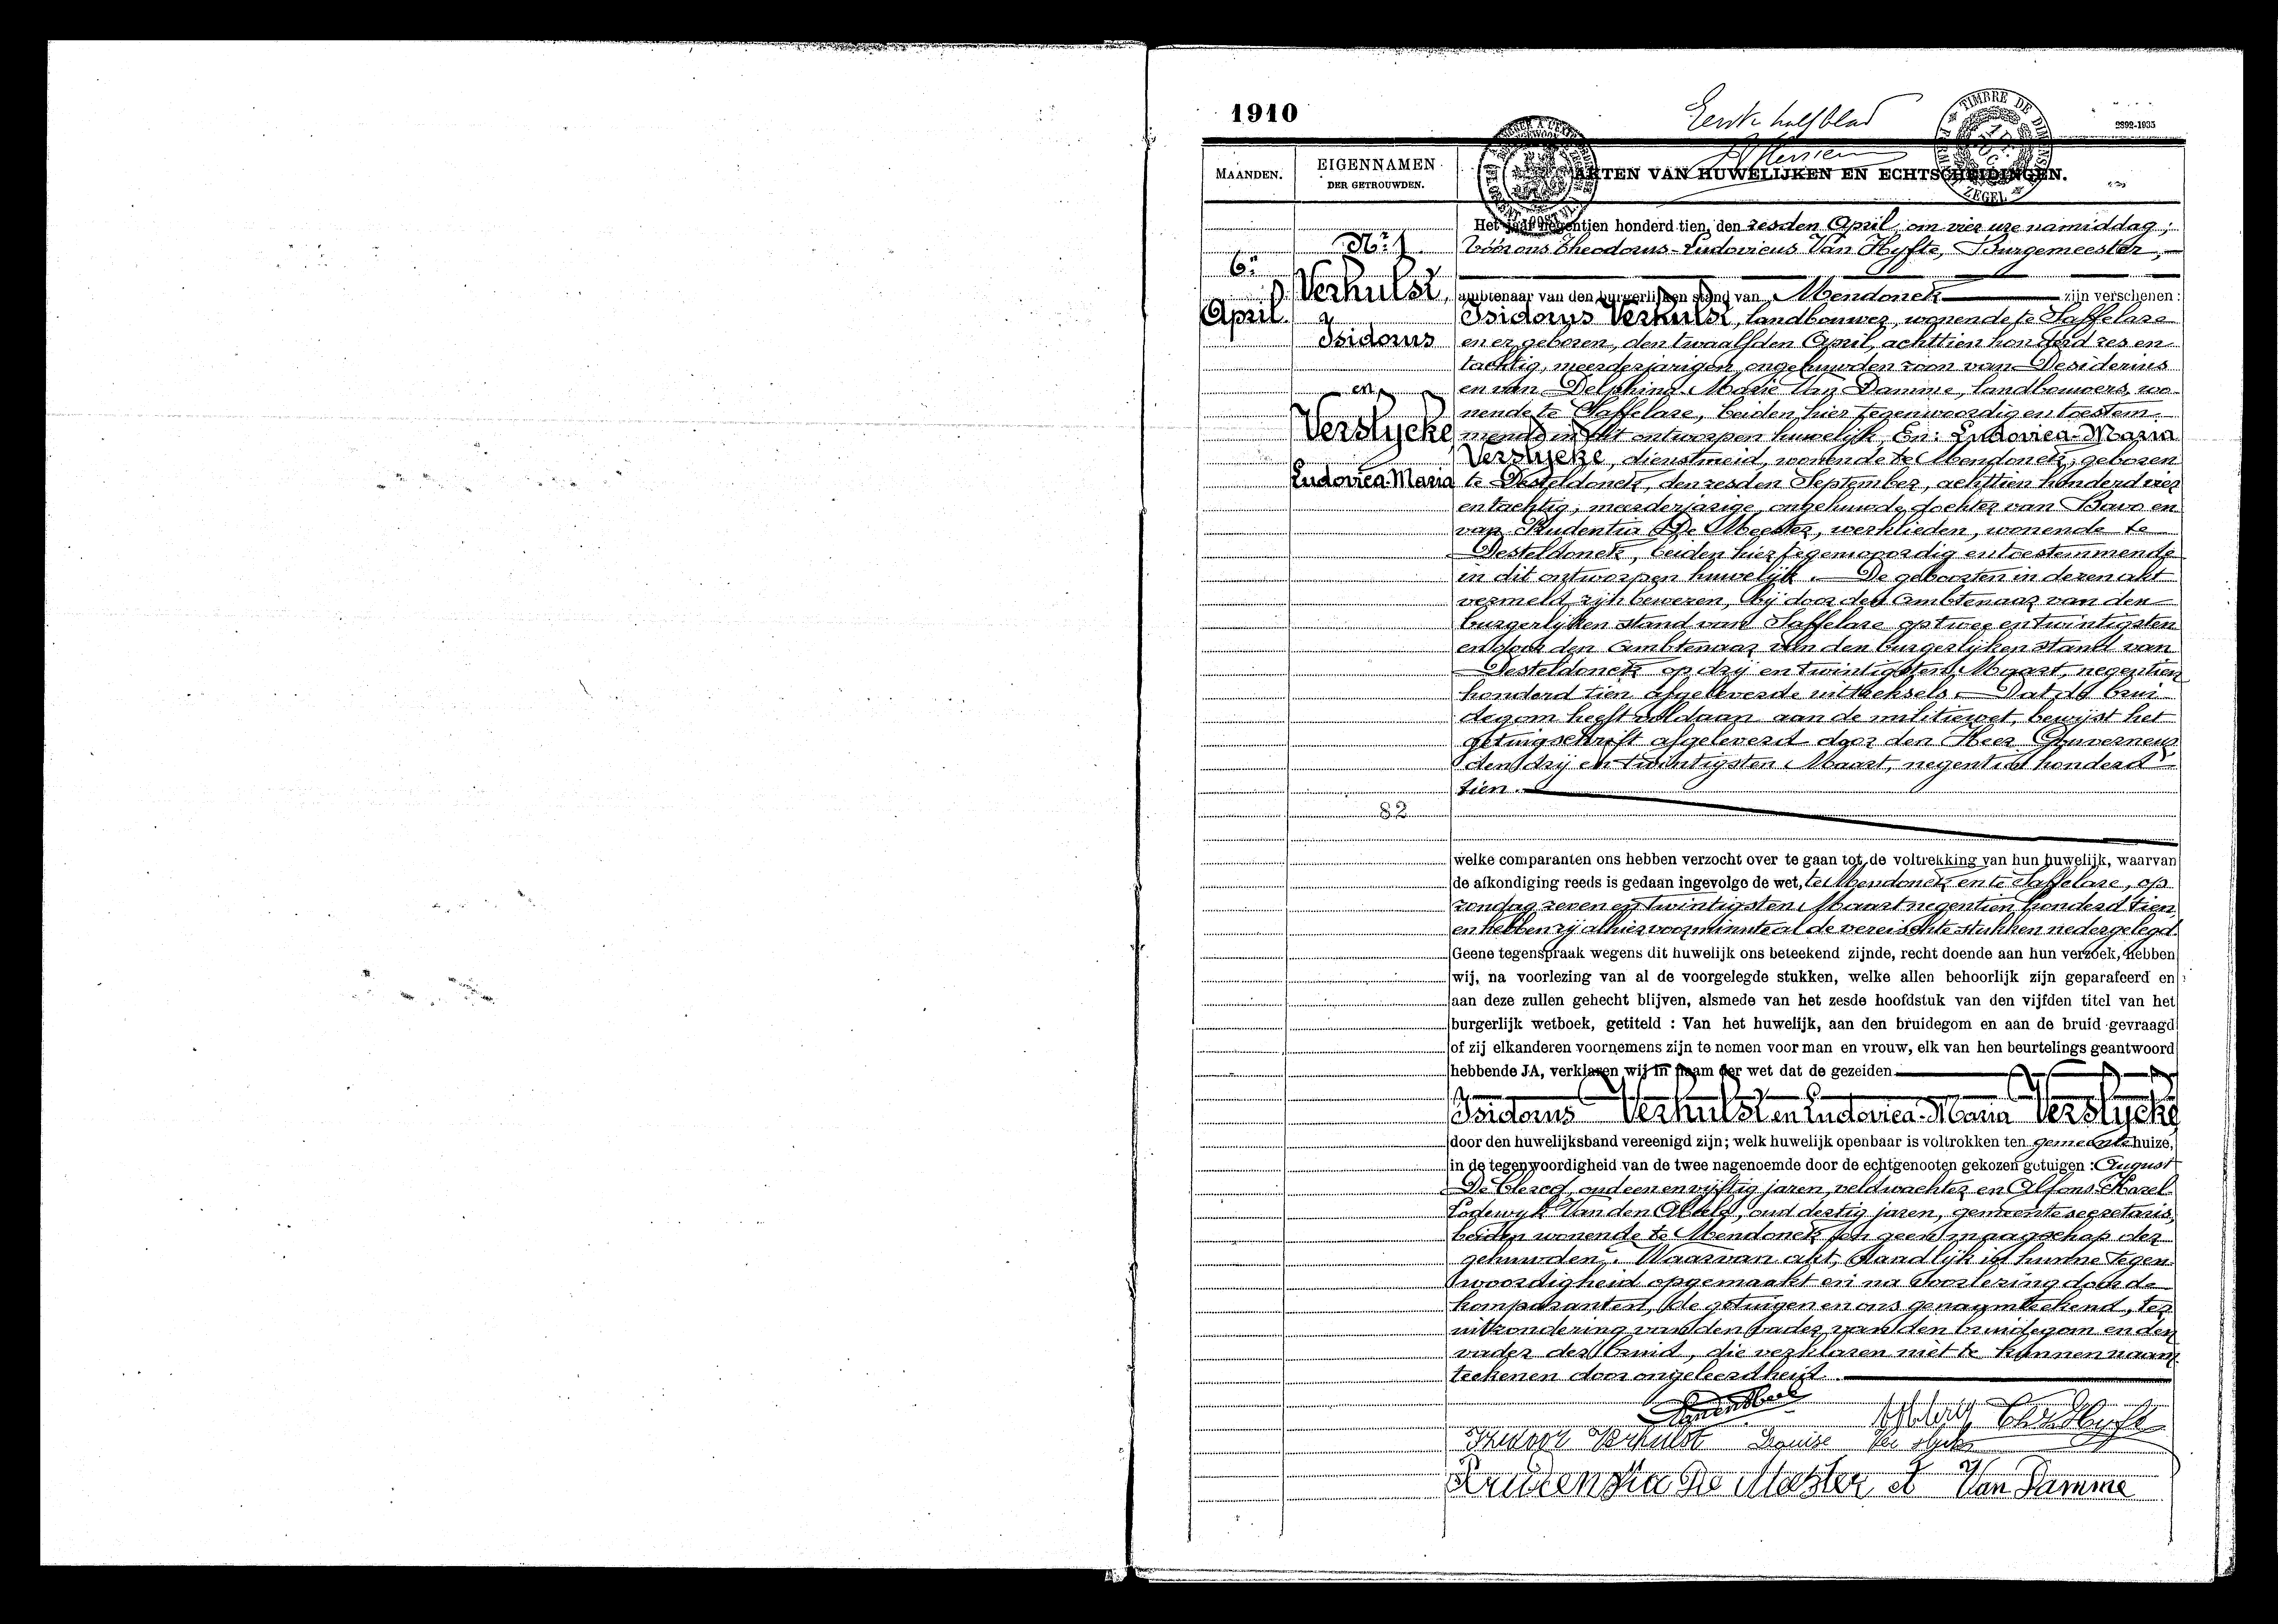 1910
Eerste halfblad
2892-1935
TIMBRE DE DIMENS
ZEGEL
MAANDEN.
EIGENNAMEN
DER GETROUWDEN.
AKTEN VAN HUWELIJKEN EN ECHTSCHEIDINGEN.
6n
April
Nr 1
Verhulst,
Isidorus
en
Verslycke,
Ludovica-Maria
82
Het jaar negentien honderd tien, den zesden April, om vier ure namiddag,
Vóór ons Theodorus-Ludovicus Van Hyfte, Burgemeester,
ambtenaar van den burgerlijken stand van Mendonck zijn verschenen:
Isidorus Verhulst, landbouwer, wonende te Saffelare
en er geboren, den twaalfden April, achttien honderd zes en
tachtig, meerderjarigen ongehuwden zoon van Desiderius
en van Delphina-Marie Van Damme, landbouwers, wo-
nende te Saffelare, beiden hier tegenwoordig en toestem-
mende in dit ontworpen huwelijk, En: Ludovica-Maria
Verslycke, dienstmeid, wonende te Mendonck, geboren
te Desteldonck, den zesden September, achttien honderd vier
en tachtig, meerderjarige, ongehuwde dochter van Bavo en
van Prudentia De Meester, werklieden, wonende te
Desteldonck, beiden hier tegenwoordig en toestemmende
in dit ontworpen huwelijk. De geboorten in dezen akt
vermeld zijn bewezen, bij door den Ambtenaar van den
burgerlijken stand van Saffelare op twee en twintigsten
en door den Ambtenaar van den burgerlyken stand van
Desteldonck op drij en twintigsten Maart, negentien
honderd tien afgeleverde uittreksels. Dat de brui-
degom heeft voldaan aan de militiewet, bewijst het
getuigschrift afgeleverd door den Heer Gouverneur
den drij en twintigsten Maart, negentien honderd
tien.
welke comparanten ons hebben verzocht over te gaan tot de voltrekking van hun huwelijk, waarvan
de afkondiging reeds is gedaan ingevolge de wet, te Mendonck en te Saffelare, op
zondag zeven en twintigsten Maart negentien honderd tien
en hebben zij alhier voor minute al de vereischte stukken nedergelegd.
Geene tegenspraak wegens dit huwelijk ons beteekend zijnde, recht doende aan hun verzoek, hebben
wij, na voorlezing van al de voorgelegde stukken, welke allen behoorlijk zijn geparafeerd en
aan deze zullen gehecht blijven, alsmede van het zesde hoofdstuk van den vijfden titel van het
burgerlijk wetboek, getiteld : Van het huwelijk, aan den bruidegom en aan de bruid gevraagd
of zij elkanderen voornemens zijn te nemen voor man en vrouw, elk van hen beurtelings geantwoord
hebbende JA, verklaren wij in naam der wet dat de gezeiden
Isidorus Verhulst en Ludovica-Maria Verslycke
door den huwelijksband vereenigd zijn; welk huwelijk openbaar is voltrokken ten gemeentehuize,
in de tegenwoordigheid van de twee nagenoemde door de echtgenooten gekozen getuigen : August
De Clercq, oud een en vijftig jaren, veldwachter en Alfons-Karel-
Lodewyk Van den Abeele, oud dertig jaren, gemeente secretaris,
beiden wonende te Mendonck en geen maagschap der
gehuwden. Waarvan akt, dadelijk in hunne tegen-
woordigheid opgemaakt en na voorlezing door de
komparanten, de getuigen en ons genaamteekend, ter
uitzondering van den vader van den bruidegom en den
vader der bruid, die verklaren niet te kunnen naam-
teekenen door ongeleerdheid.
VandenAbeele
Verhulst Louise Verslycke
Prudensia De Meester et Van Damme